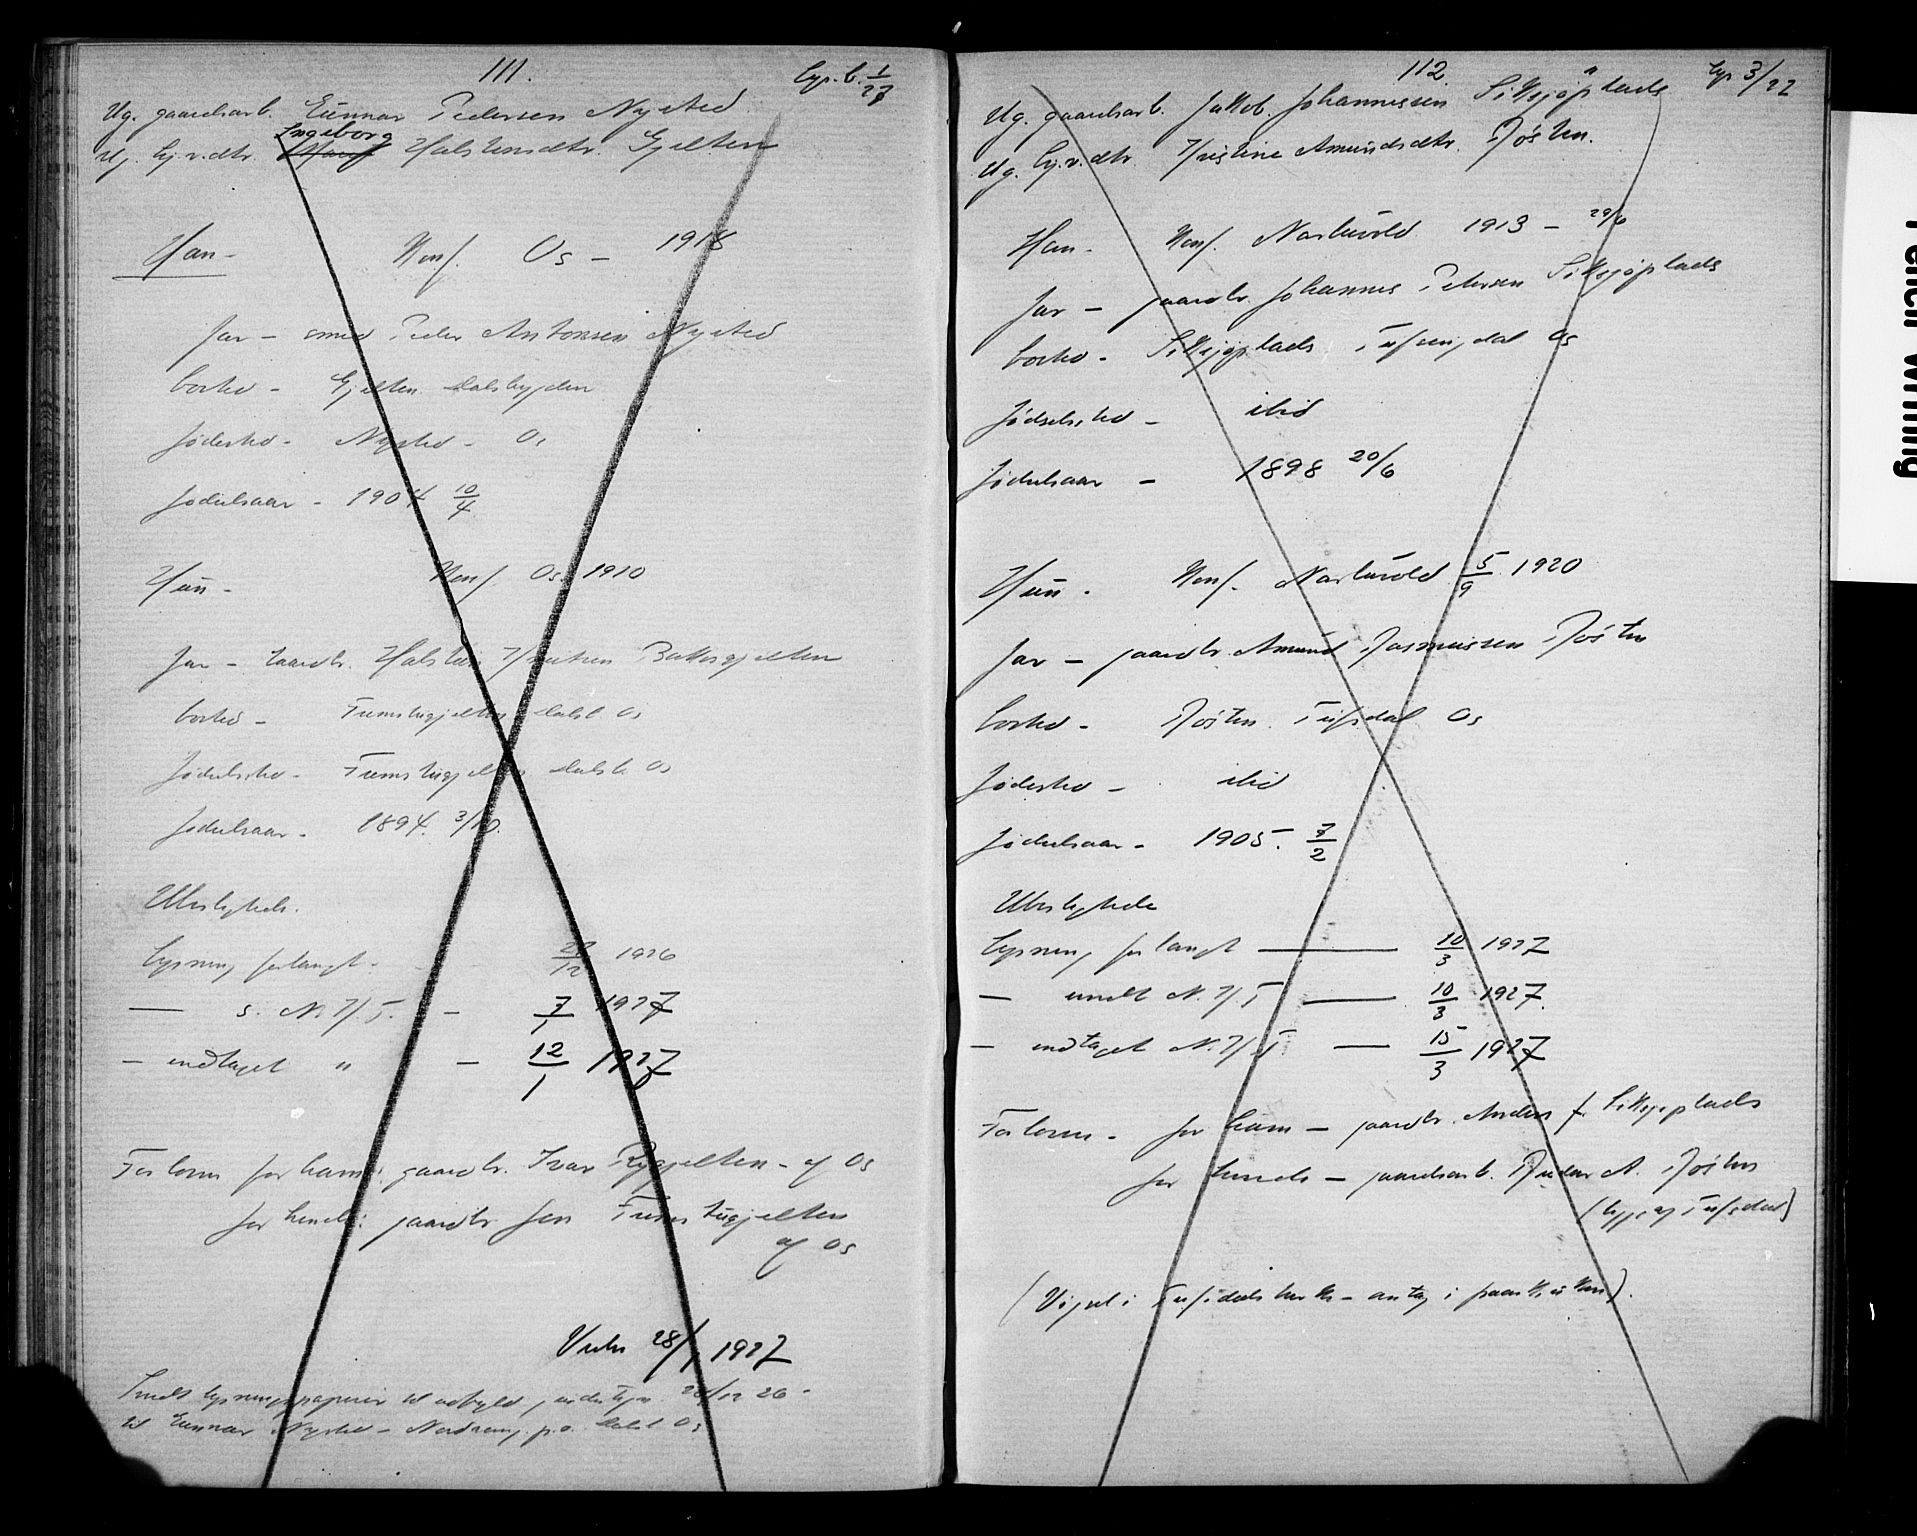 111.
Lys. b. 1/27
Ug. gaardsarb. Gunnar Pedersen Nysted
Ug. hj.v.dtr. Ingeborg Halstensdtr. Gjelten
Han - Konf. Os - 1918
Far - smed Peder Antonsen Nysted
bosted - Gjelten Dalsbygden
Fødested - Nysted - Os
Fødselsaar - 1904 10/4
Hun - Konf. Os 1910
Far - gaardbr. Halsten Bakkegjelten
bosted - Fremstugjelten Dalsb. Os
Fødselssted - Fremstugjelten Dalsb. Os
Fødselsaar - 1894. 3/10.
Ubeslegtede.
Lysning forlangt - 1926
— s. N. T/T. - 7/1 1927
- indtaget " - 12/1 1927
Forlover for ham: gaardbr. Ivar Ryggjelten - af Os
for hende: gaardbr Jon Fremstugjelten
af Os
Viet 28/1 1927
Sendt lysningspapirer til utfyld /12 26 -
til Gunnar Nysted - Nordvang p.o. Dalsb Os
112
Lys 3/27
Ug. gaardsarb. Jakob Johannessen Siksjøplads
Ug. hj.v.dtr. Kristine Amundsdtr. Røsten.
Han - Konf. Narbuvold 1913 - 29/6
Far - gaardbr. Johannes Petersen Siksjøplads
bosted - Siksjøplads Tufsingdal Os
Fødselssted - ibid
Fødselsaar - 1898 20/6
Hun - Konf. Narbuvold 5/9 1920
Far - gaardbr. Amund Rasmussen Røsten
bosted - Røsten. Tufsdal Os
Fødested - ibid
Fødselsaar - 1905. 7/2
Ubeslegtede
Lysning forlangt — 10/3 1927
— sendt N. T/T — 10/3 1927.
- indtaget N. T/T — 15/3 1927
Forlover - for ham - gaardbr. Anders J. Siksjøplads
for hende - gaardsarb. Peder A. Røsten
(begge af Tufsdal)
(Viet i Tufsdals kirke - antag i paasken).